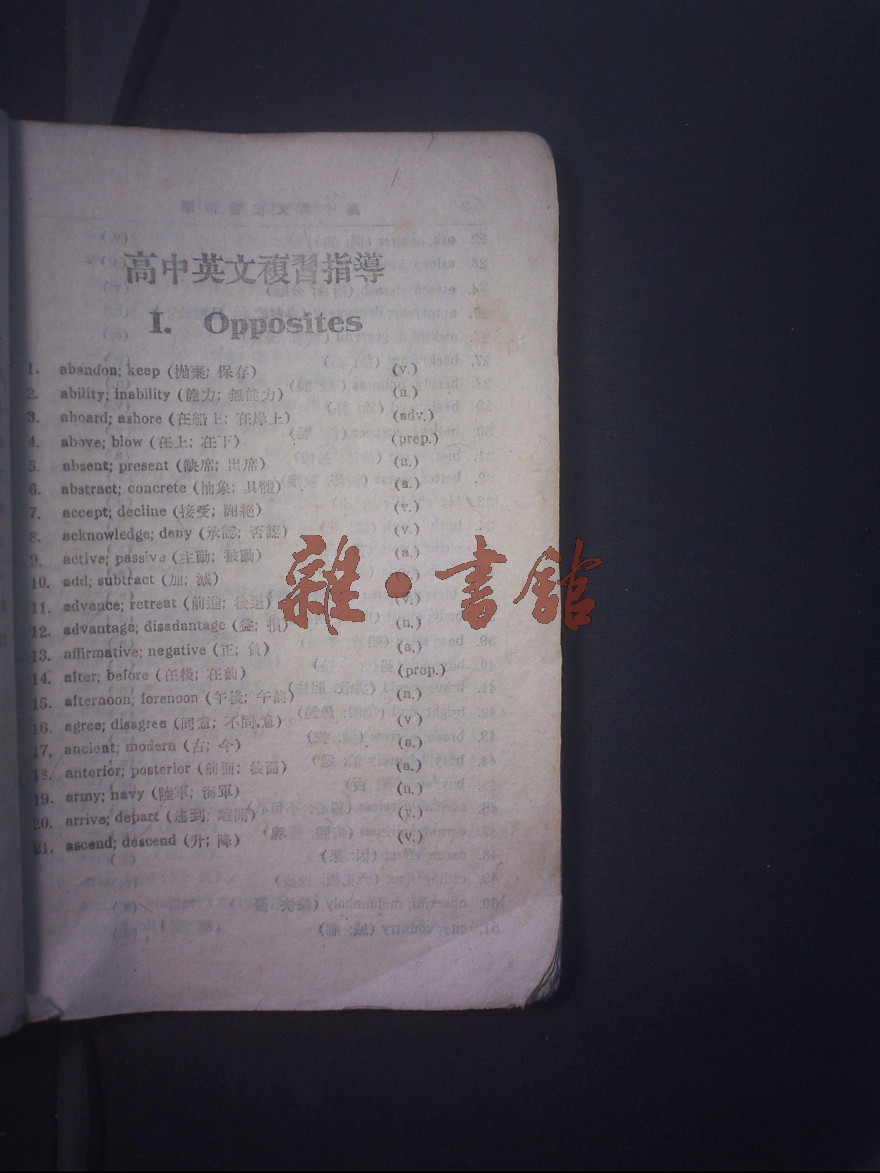 高中英文複習指導
I. Opposites
1. abandon; keep (抛棄; 保存) (v.)
2. ability; inability (能力; 無能力) (n.)
3. aboard; ashore (在船上; 在岸上) (adv.)
4. above; blow (在上; 在下) (prep.)
5. absent; present (缺席; 出席) (a.)
6. abstract; concrete (抽象; 具體) (a.)
7. accept; decline (接受; 謝絕) (v.)
8. acknowledge; deny (承認; 否認) (v.)
9. active; passive (主動; 被動) (a.)
10. add; subtract (加; 減)
11. advance; retreat (前進; 後退) (v.)
12. advantage; disadantage (益; 損) (n.)
13. affirmative; negative (正; 負) (a.)
14. after; before (在後; 在前) (prep.)
15. afternoon; forenoon (午後; 午前) (n.)
16. agree; disagree (同意; 不同意) (v)
17. ancient; modern (古; 今) (a.)
18. anterior; posterior (前面; 後面) (a.)
19. army; navy (陸軍; 海軍) (n.)
20. arrive; depart (達到; 離開) (v.)
21. ascend; descend (升; 降) (v.)
雜·書館